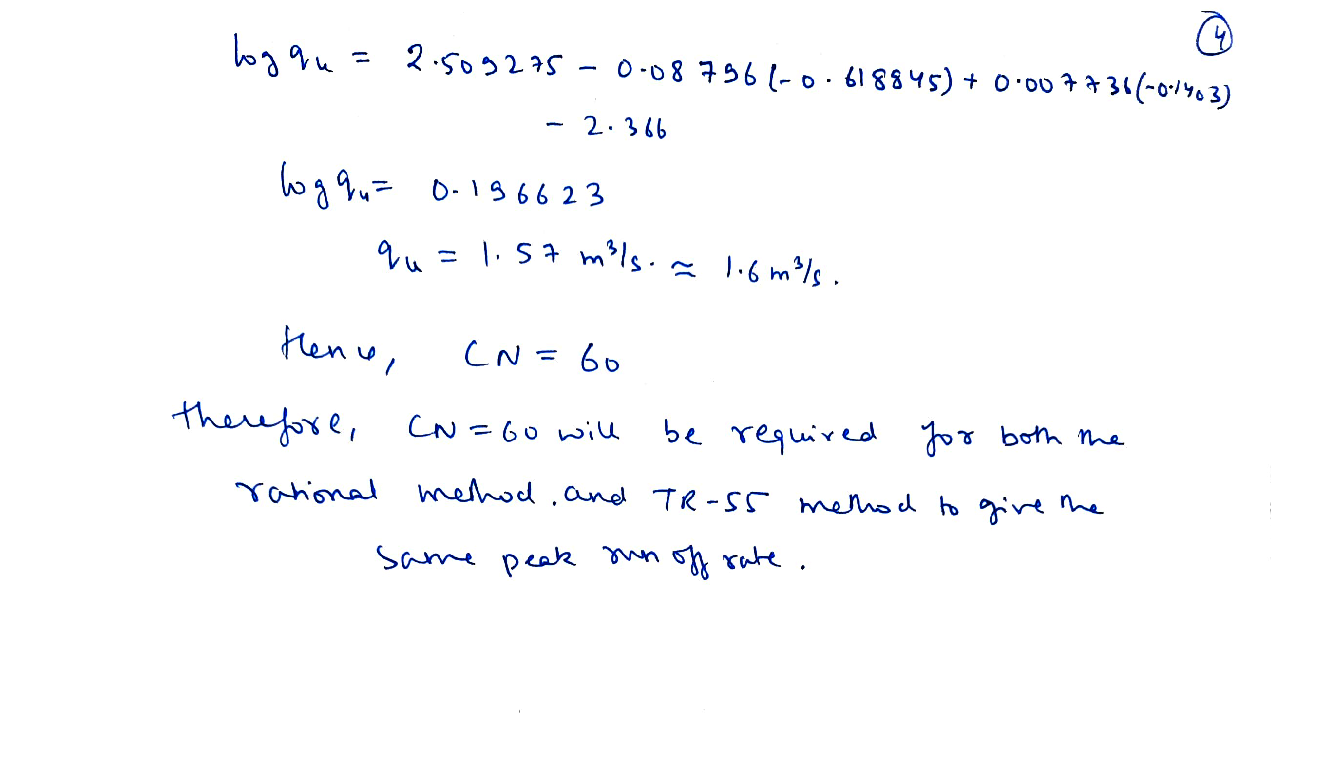 4
log qu = 2.509275 - 0.08796 (-0.618845) + 0.007736 (-0.1403)
- 2.366
log qu = 0.196623
qu = 1.57 m³/s. ≈ 1.6 m³/s.
Hence, CN = 60
therefore, CN = 60 will be required for both the
rational method. and TR-55 method to give the
same peak run off rate.